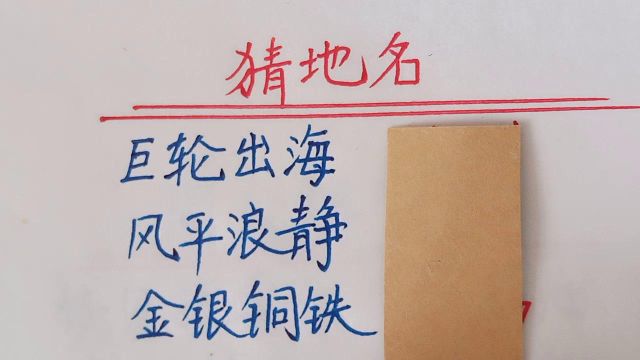 猜地名
巨轮出海
风平浪静
金银铜铁